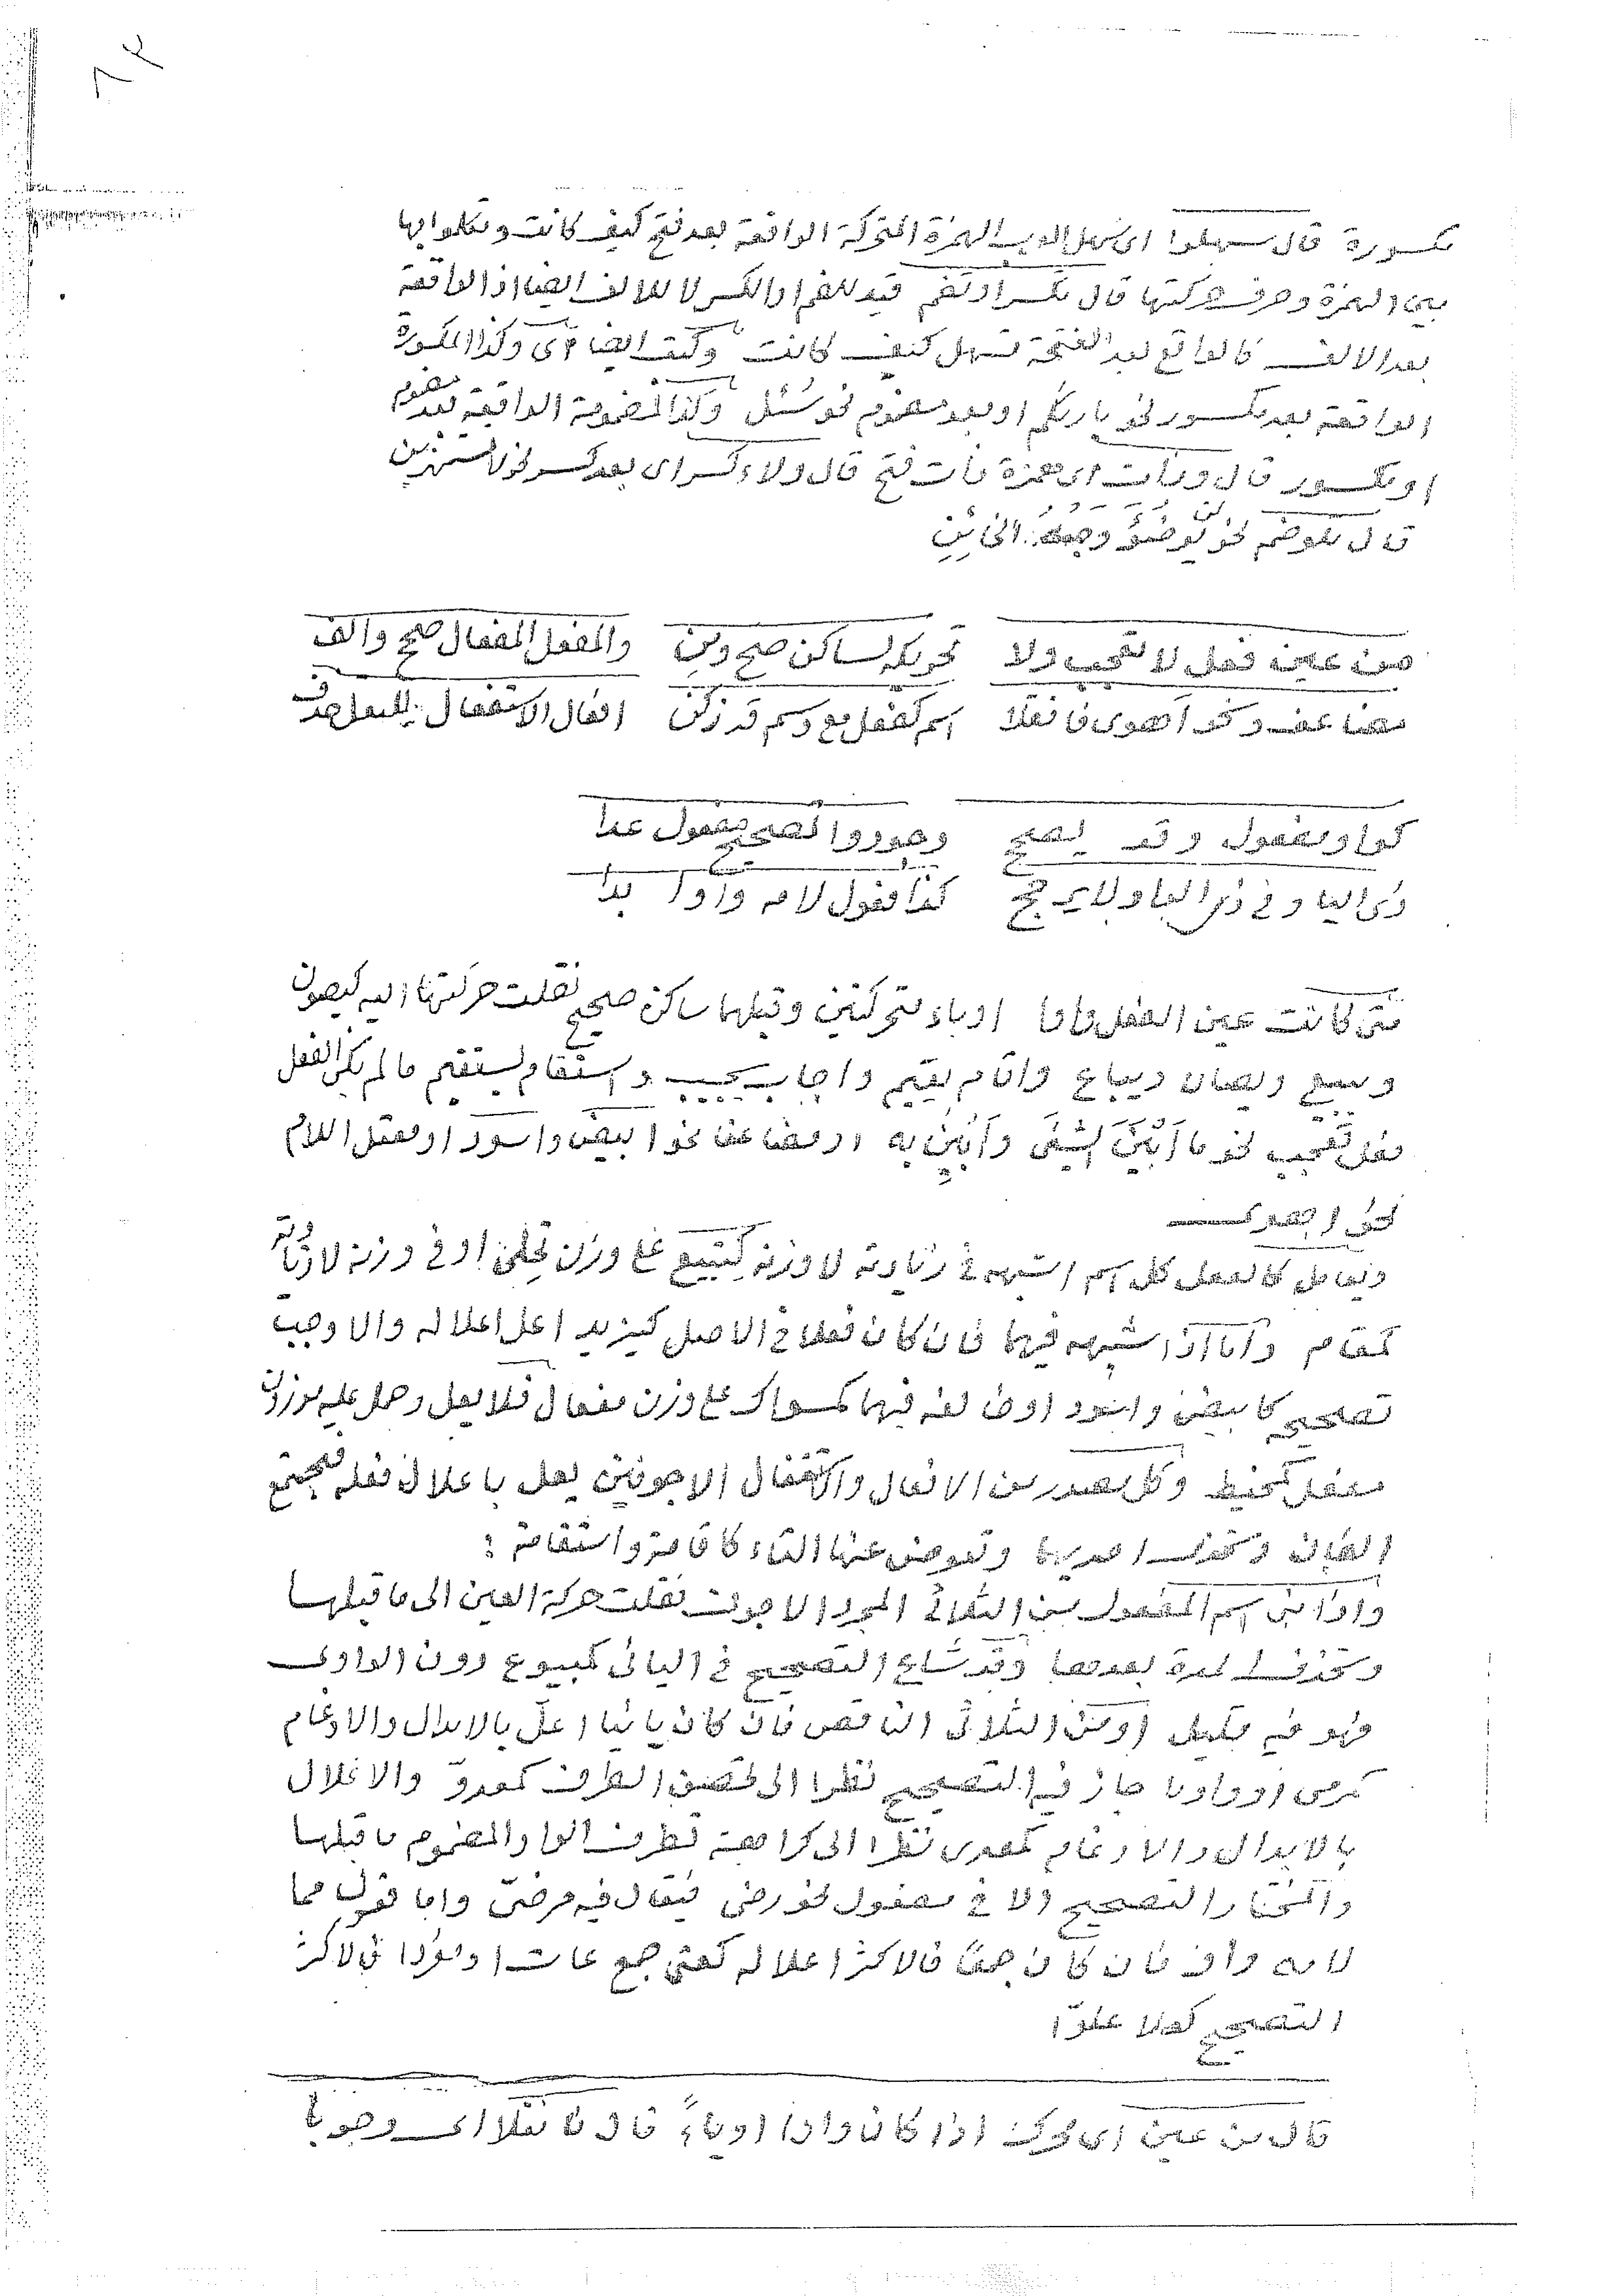 مكسورة قال سهلوا اى سهل العرب الهمزة المتحركة الواقعة بعد فتح كيف كانت وتلوا بها
بين الهمزة وحرف حركتها قال بكسر او بضم قيد للضم او الكسر لا للالف ايضا اذ الواقعة
بعد الالف كالواقع بعد الفتحة تسهل كيف كانت وكيف ايضا وكذا المكسورة
الواقعة بعد مكسور نحو بارئكم او بعد مضموم نحو سُئل وكذا المضمومة الواقعة بعد مضموم
او مكسور قال وتأت اى همزة تأت فتح قال ولاء كسر اى بعد كسر نحو لا مستهزئين
قال تلو ضم نحو لن يوضُؤَ وجهه
من عين فعل لا لتعجب ولا تحريك لساكن صح ومن والمفعل المفعال صح والف
مضاعف ونحو اهوى فانقلا اسم كفعل مع وسم قد زكن افعال الاستفعال
كواو مفعول وقد يصح وصوروا تصحيح مفعول عدا
ذى الياء وفى ذى الياء ولا يرجح كذا فعول لامه واوا بدا
متى كانت عين الفعل واوا او ياء متحركتين وقبلهما ساكن صحيح نقلت حركتها اليه كيصون
ويبيع ويصان ويباع واقام يقيم واجاب يجيب واستقام يستقيم ما لم يكن الفعل
فعل تعجب نحو ما اَبْيَنَ الشيئ وأَبْيِن به او مضاعفا نحو ابيض واسود او معتل اللام
نحو اهوى
ويعامل كالفعل كل اسم اشبهه فى زيادته لا وزنه كتبيع على وزن تحلئ او فى وزنه لا زيادته
كمقام واما اذا شبهه فيهما فان كان فعلا فى الاصل كيزيد اعل اعلاله والا وجب
تصحيحه كابيض واسود او خالفه فيهما كمسواك على وزن مفعال فلا يعل وحمل عليه موزون
مفعل كمخيط وكل مصدر من الافعال والاستفعال الاجوفين يعل باعلال فعله فيجتمع
الفان وتحذف احديهما وتعوض عنها التاء كاقامة واستقامة :
واذا بنى اسم المفعول من الثلاثى المجرد الاجوف نقلت حركة العين الى ما قبلها
وتحذف المدة بعدها وقد شاع التصحيح فى اليائى كمبيوع دون الواوى
فهو فيه قليل او من الثلاثى الناقص فان كان يائيا اعلّ بالابدال والادغام
كرمى او واويا جاز فيه التصحيح نظرا الى تحصن الطرف كمعدوّ والاعلال
بالابدال والادغام كمعدى نظرا الى كراهة تطرف الواو المضموم ما قبلها
والمختار التصحيح الا فى مفعول نحو رضى فيقال فيه مرضىّ واما فعول مما
لامه واو فان كان جمعا فالاكثر اعلاله كعتى جمع عات او مفردا فالاكثر
التصحيح كعلا علوّا
قال من عين اى تحرك اذا كان واوا او ياءً قال فانقلا اى وجوبا